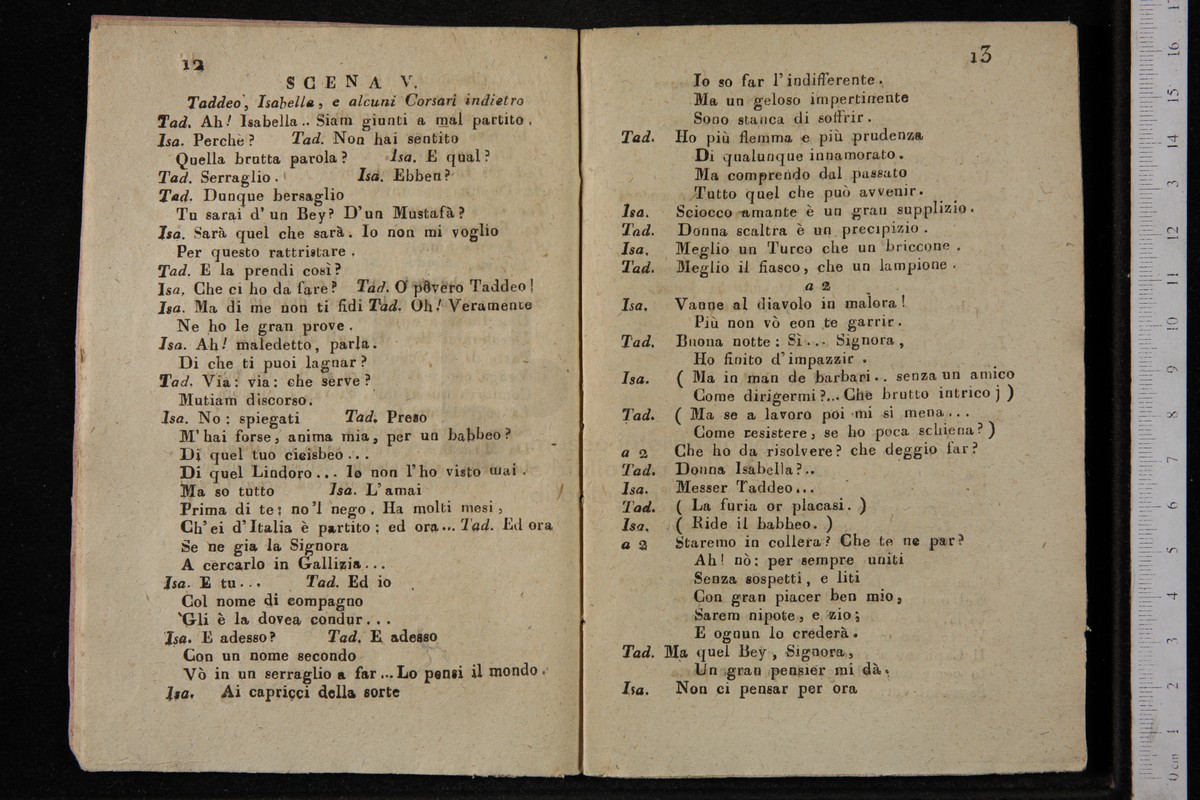 12
SCENA V.
Taddeo, Isabella, e alcuni Corsari indietro
Tad. Ah! Isabella.. Siam giunti a mal partito.
Isa. Perchè? Tad. Non hai sentito
Quella brutta parola? Isa. E qual?
Tad. Serraglio. Isa. Ebben?
Tad. Dunque bersaglio
Tu sarai d'un Bey? D'un Mustafà?
Isa. Sarà quel che sarà. Io non mi voglio
Per questo rattristare.
Tad. E la prendi così?
Isa. Che ci ho da fare? Tad. O povero Taddeo!
Isa. Ma di me non ti fidi Tad. Oh! Veramente
Ne ho le gran prove.
Isa. Ah! maledetto, parla.
Di che ti puoi lagnar?
Tad. Via: via: che serve?
Mutiam discorso.
Isa. No: spiegati Tad. Preso
M'hai forse, anima mia, per un babbeo?
Di quel tuo cicisbeo...
Di quel Lindoro... Io non l'ho visto mai.
Ma so tutto Isa. L'amai
Prima di te; no'l nego. Ha molti mesi,
Ch'ei d'Italia è partito: ed ora... Tad. Ed ora
Se ne gia la Signora
A cercarlo in Gallizia...
Isa. E tu... Tad. Ed io
Col nome di compagno
Gli è la dovea condur...
Isa. E adesso? Tad. E adesso
Con un nome secondo
Vò in un serraglio a far... Lo pensi il mondo.
Isa. Ai capricci della sorte
13
Io so far l'indifferente.
Ma un geloso impertinente
Sono stanca di soffrir.
Tad. Ho più flemma e più prudenza
Di qualunque innamorato.
Ma comprendo dal passato
Tutto quel che può avvenir.
Isa. Sciocco amante è un gran supplizio.
Tad. Donna scaltra è un precipizio.
Isa. Meglio un Turco che un briccone.
Tad. Meglio il fiasco, che un lampione.
a 2
Isa. Vanne al diavolo in malora!
Più non vò eon te garrir.
Tad. Buona notte: Sì... Signora,
Ho finito d'impazzir.
Isa. ( Ma in man de barbari.. senza un amico
Come dirigermi?... Che brutto intrico j )
Tad. ( Ma se a lavoro poi mi si mena...
Come resistere, se ho poca schiena? )
a 2 Che ho da risolvere? che deggio far?
Tad. Donna Isabella?..
Isa. Messer Taddeo...
Tad. ( La furia or placasi. )
Isa. ( Ride il babbeo. )
a 2 Staremo in collera? Che te ne par?
Ah! nò: per sempre uniti
Senza sospetti, e liti
Con gran piacer ben mio,
Sarem nipote, e zio;
E ognun lo crederà.
Tad. Ma quel Bey, Signora,
Un gran pensier mi dà.
Isa. Non ci pensar per ora
0 cm 1 2 3 4 5 6 7 8 9 10 11 12 13 14 15 16